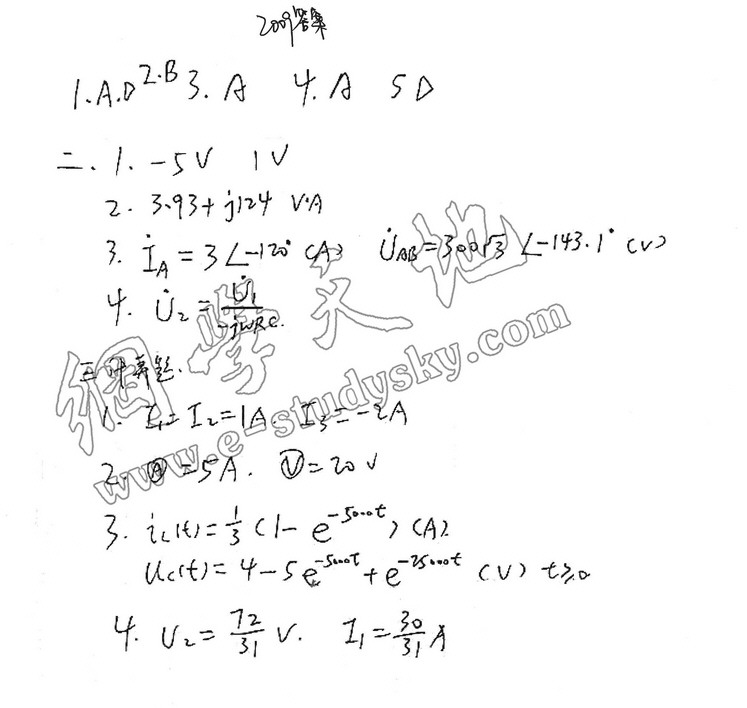 2009答案
1.A.D 2.B 3. A 4. A 5 D
二. 1. -5V 1V
2. 3.93+j124 V·A
3. İ_A = 3∠-120° (A) U̇_AB = 300√3 ∠-143.1° (V)
4. U̇₂ = U̇₁/-jωRC.
三 计算题.
1. I₁ = I₂ = 1A. I₃ = -2A
2. Ⓐ = 5A. Ⓥ = 20V
3. i_L(t) = 1/3 (1 - e^-5000t) (A)
u_c(t) = 4 - 5e^-5000t + e^-25000t (V) t≥0
4. U₂ = 72/31 V. I₁ = 30/31 A
網學天地
www.e-studysky.com